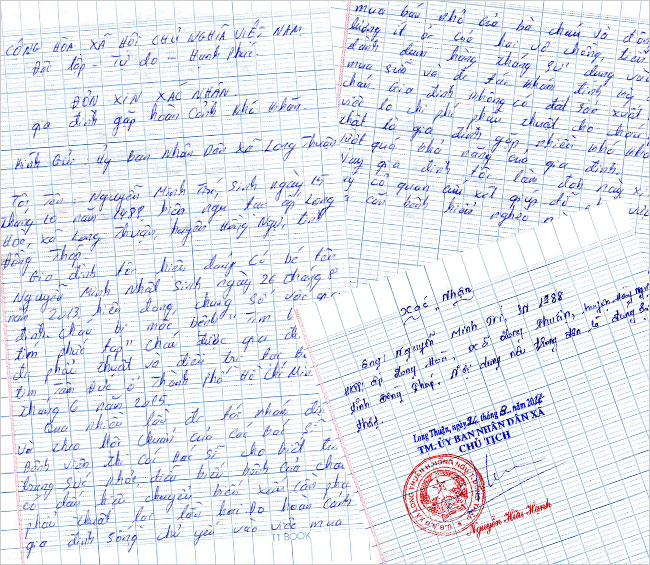 CÔNG HÒA XÃ HỘI CHỦ NGHĨA VIỆT NAM
Độc lập - Tự do - Hạnh phúc
ĐƠN XIN XÁC NHẬN
gia đình gặp hoàn cảnh khó khăn
Kính gửi: Ủy Ban Nhân Dân Xã Long Thuận
Tôi Tên: Nguyễn Minh Trí, sinh ngày 15
tháng 10 năm 1988, hiện ngụ tại ấp Long
Hòa, xã Long Thuận, huyện Hồng Ngự, tỉnh
Đồng Tháp.
Gia đình tôi hiện đang có bé tên
Nguyễn Minh Nhật Sinh ngày 26 tháng 8
năm 2013 hiện đang chung sống với gia
đình. Cháu bị mắc bệnh "Tim
tim phức tạp" Cháu được gia đình
đi phẩu thuật và điều trị tại
tim Tâm Đức ở Thành Phố Hồ Chí Minh
tháng 6 năm 2015
Qua nhiều lần đi tái khám
và theo Hội chuẩn của các Bác sĩ
Bệnh viện thì các Bác sĩ cho biết
trạng sức khỏe, diễn biến bệnh của cháu
có dấu hiệu chuyển biến xấu cần phải
phẩu thuật lại lần hai do hoàn cảnh
gia đình sống chủ yếu vào việc mua
TT BOOK
mua bán nhỏ của bà cháu và đồng
lương ít ỏi của hai vợ chồng, tiền
dành dụm hàng tháng sử dụng vào
mua sữa và đi tái khám định kỳ
cháu. Gia đình không có đất sản xuất
việc lo chi phí phẩu thuật cho cháu
thật là gia đình gặp nhiều khó khăn
vượt quá khả năng của gia đình.
Vậy gia đình tôi làm đơn này xin
quý cơ quan cứu xét giúp đỡ
con bệnh hiểm nghèo
Xác Nhận
Ông: Nguyễn Minh Trí, SN 1988
ấp Long Hòa, xã Long Thuận, huyện Hồng Ngự
tỉnh Đồng Tháp. Nội dung nêu trong đơn là đúng sự
thật.
Long Thuận, ngày tháng năm
TM. ỦY BAN NHÂN DÂN XÃ
CHỦ TỊCH
Nguyễn Hữu Hạnh